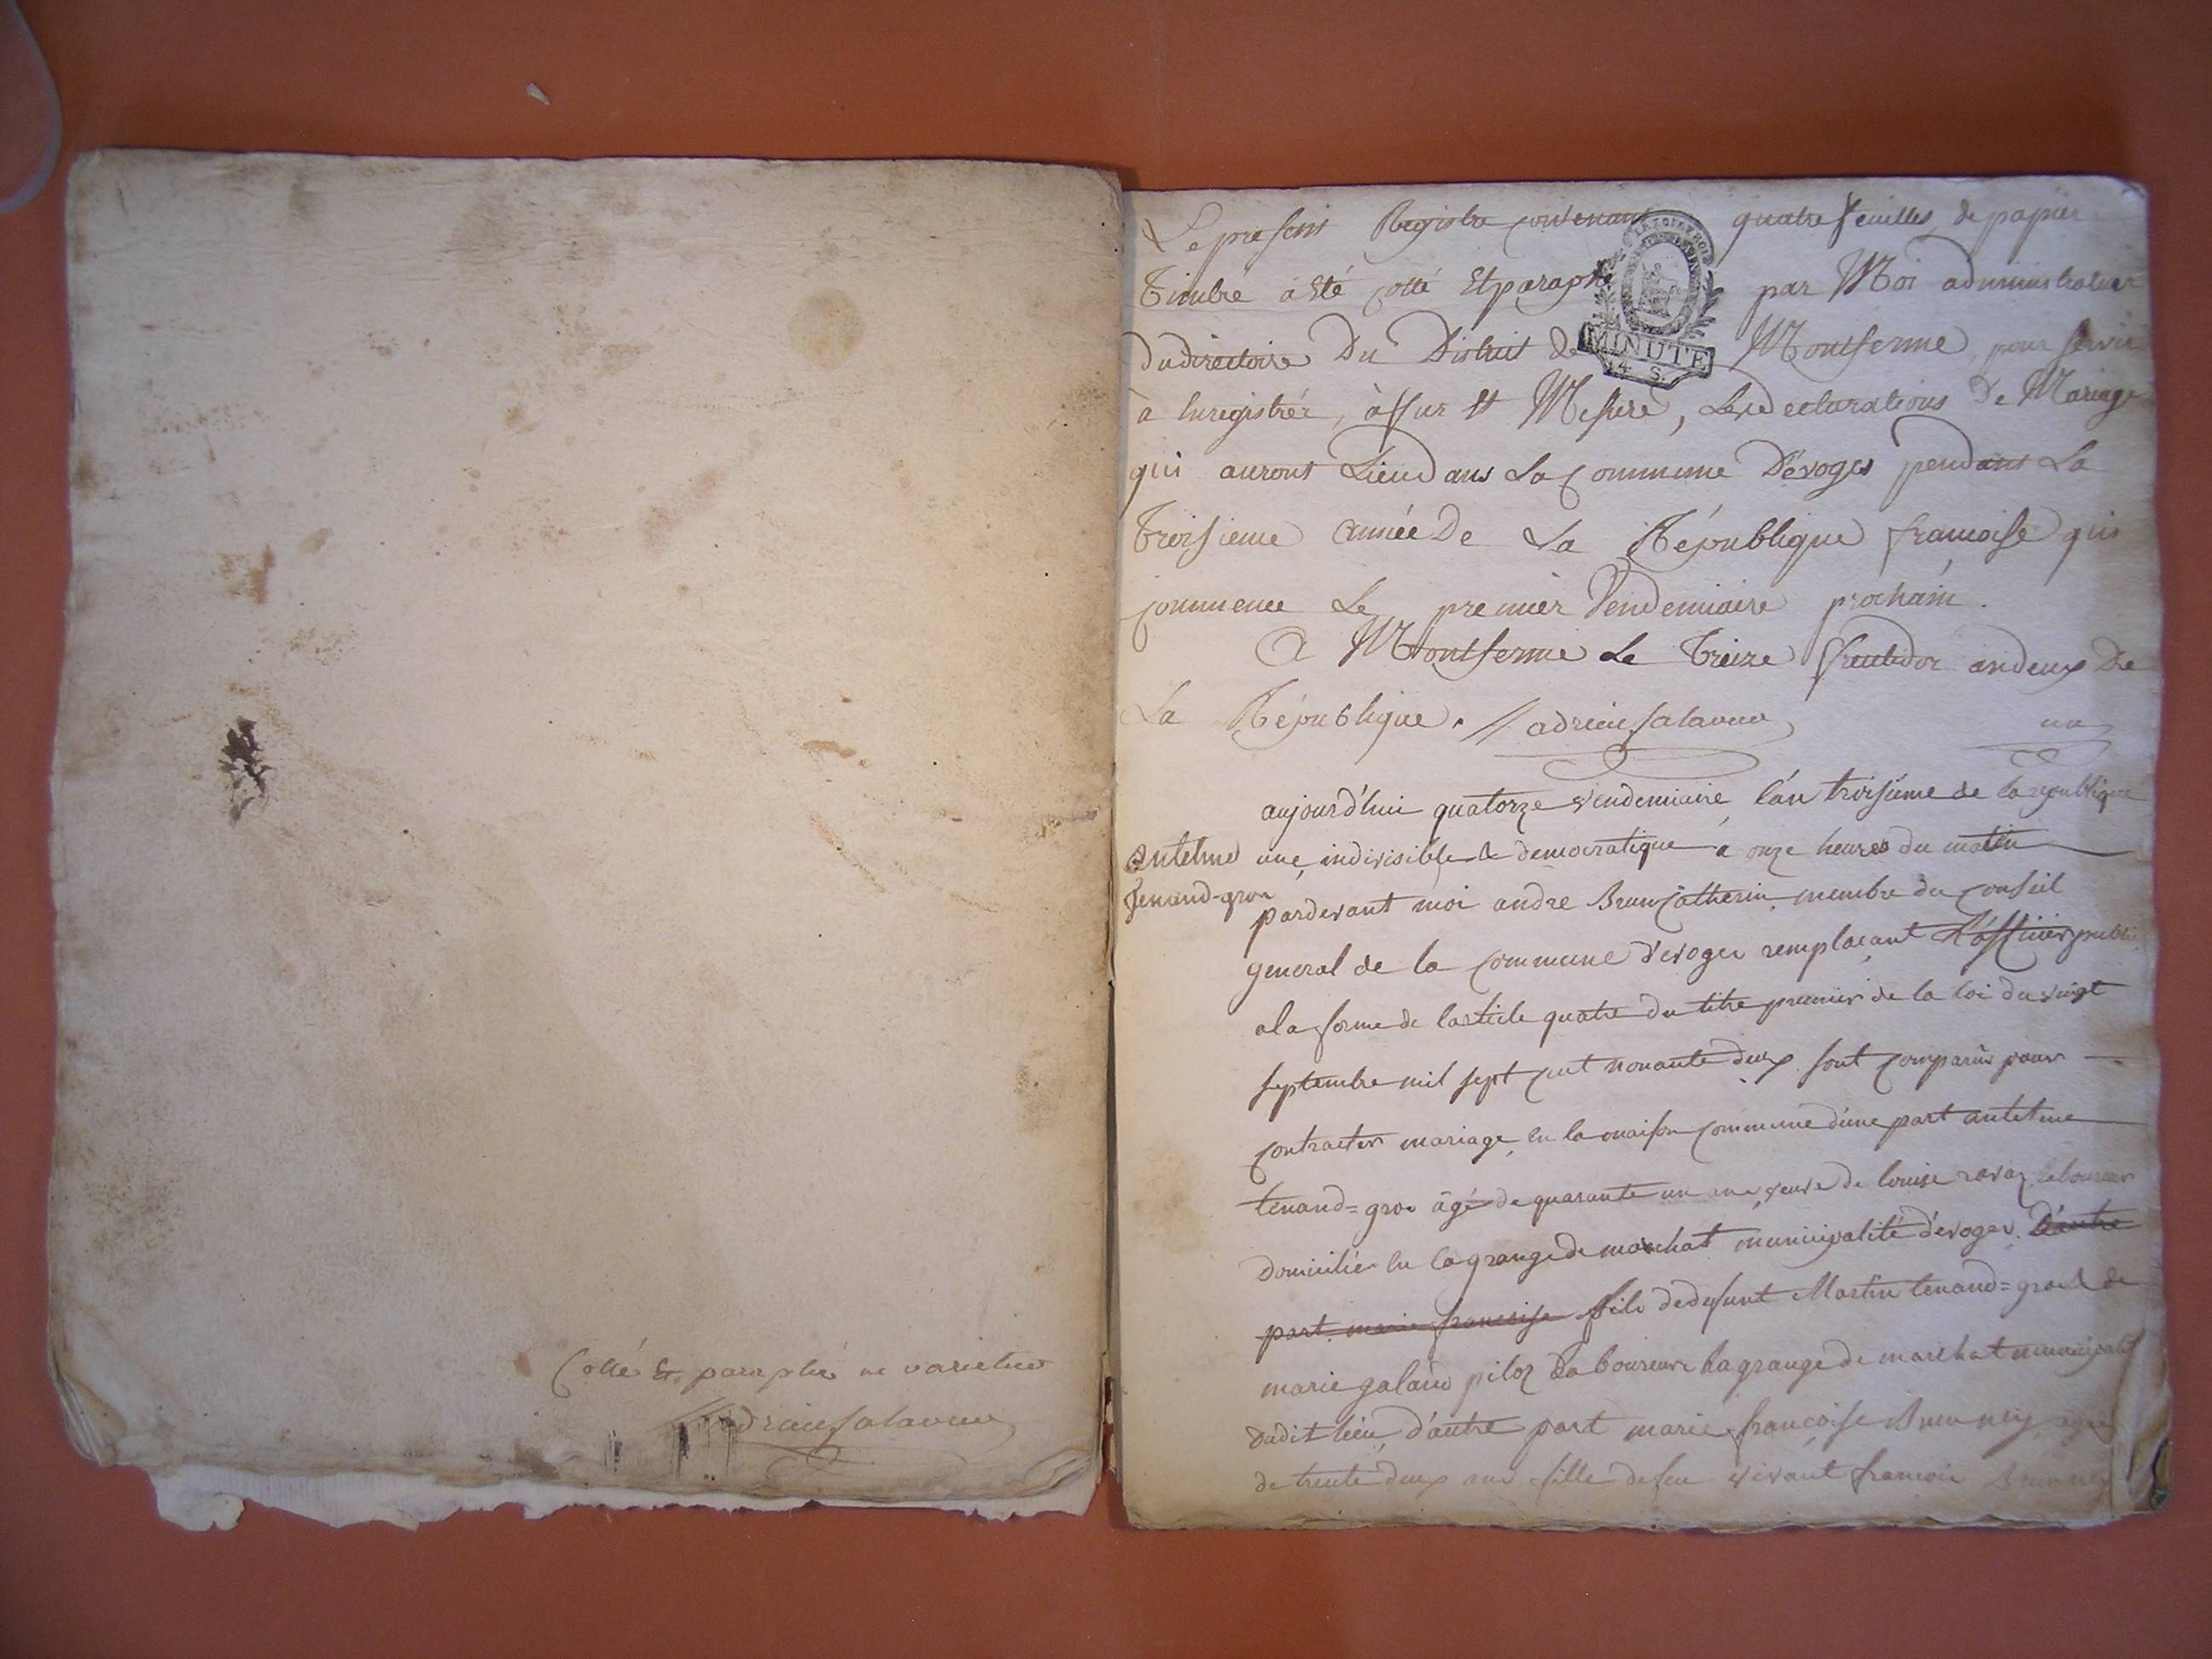 Cotté Et paraphé ne varietur
Le present Registre contenant quatre feuilles de papier
Timbre à Eté cotté Et paraphé par Moi administrateur
du directoire Du District de Montferme pour servir
à Enregistrér, à fur Et Mesure, Les declarations De Mariage
qui auront Lieu dans La Commune D'évoges pendant La
Troisieme année De La République françoise qui
commence Le premier Vendemiaire prochain.
A Montferme Le Treize fructidor an deux De
La République.
MINUTE
4 S.
aujourd'hui quatorze vendemiaire l'an troisieme de la republique
Antelme une, indivisible & democratique à onze heures du matin
Tenand-gros pardevant moi andré Brun Catherin membre du Conseil
general de la Commune d'evoges remplaçant l'officier public
a la forme de l'article quatre du titre premier de la loi du vingt
septembre mil sept cent nonante deux sont comparus pour
contracter mariage en la maison commune d'une part antelme
tenand=gros âgé de quarante un ans, veuf de louise ravaz laboureur
domicilié en la grange de marchat municipalité d'evoges. D'autre
part. marie francoise fils de defunt Martin tenand=gros & de
marie galand piloz Laboureurs la grange de marchat municipalité
dudit lieu, d'autre part marie françoise Brun agée
de trente deux ans fille de feu vivant francois